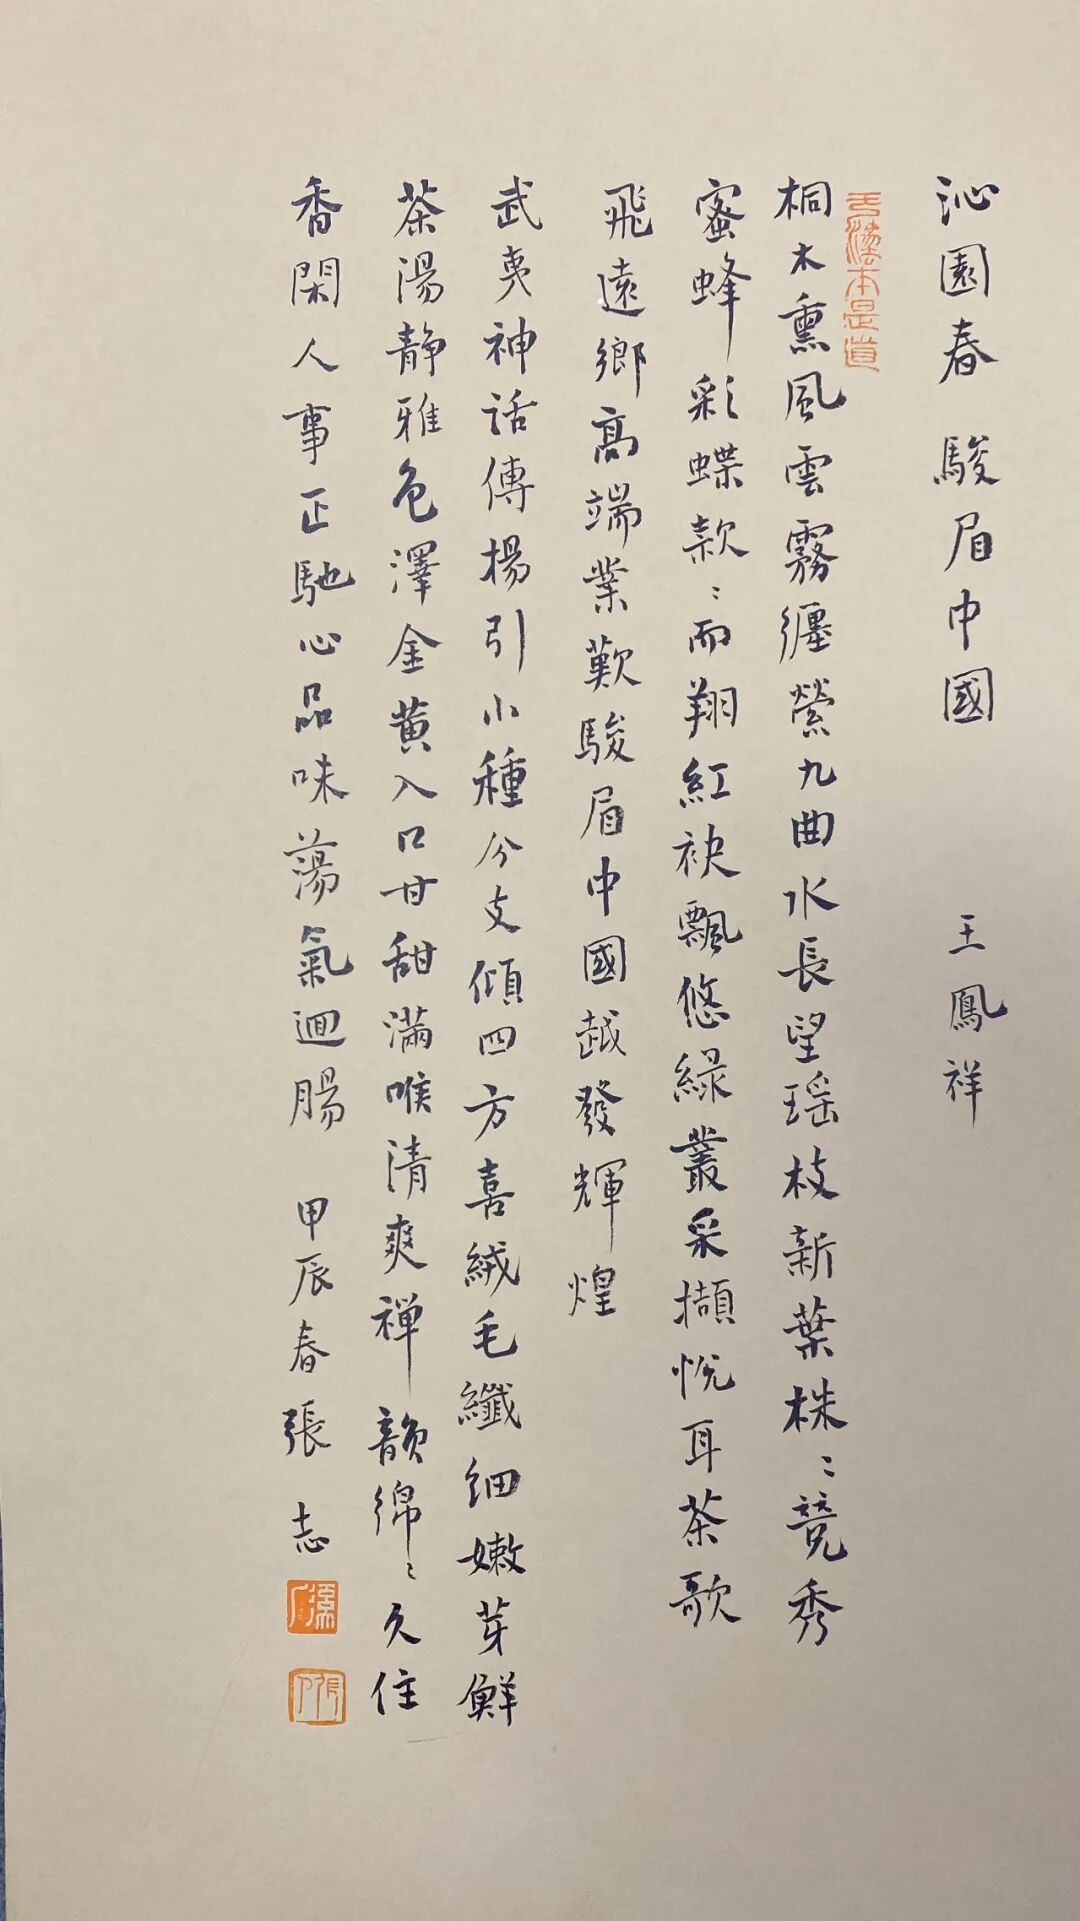 沁園春 駿眉中國 王鳳祥
桐木熏風雲霧纏縈九曲水長望瑶枝新葉株〻競秀
蜜蜂彩蝶款〻而翔紅袂飄悠綠叢采擷悦耳茶歌
飛遠鄉高端業歎駿眉中國越發輝煌
武夷神話傳楊引小種分支傾四方喜絨毛纖細嫩芽鮮
茶湯静雅色澤金黄入口甘甜滿喉清爽禅韻綿〻久住
香閑人事正馳心品味蕩氣迴腸 甲辰春張志